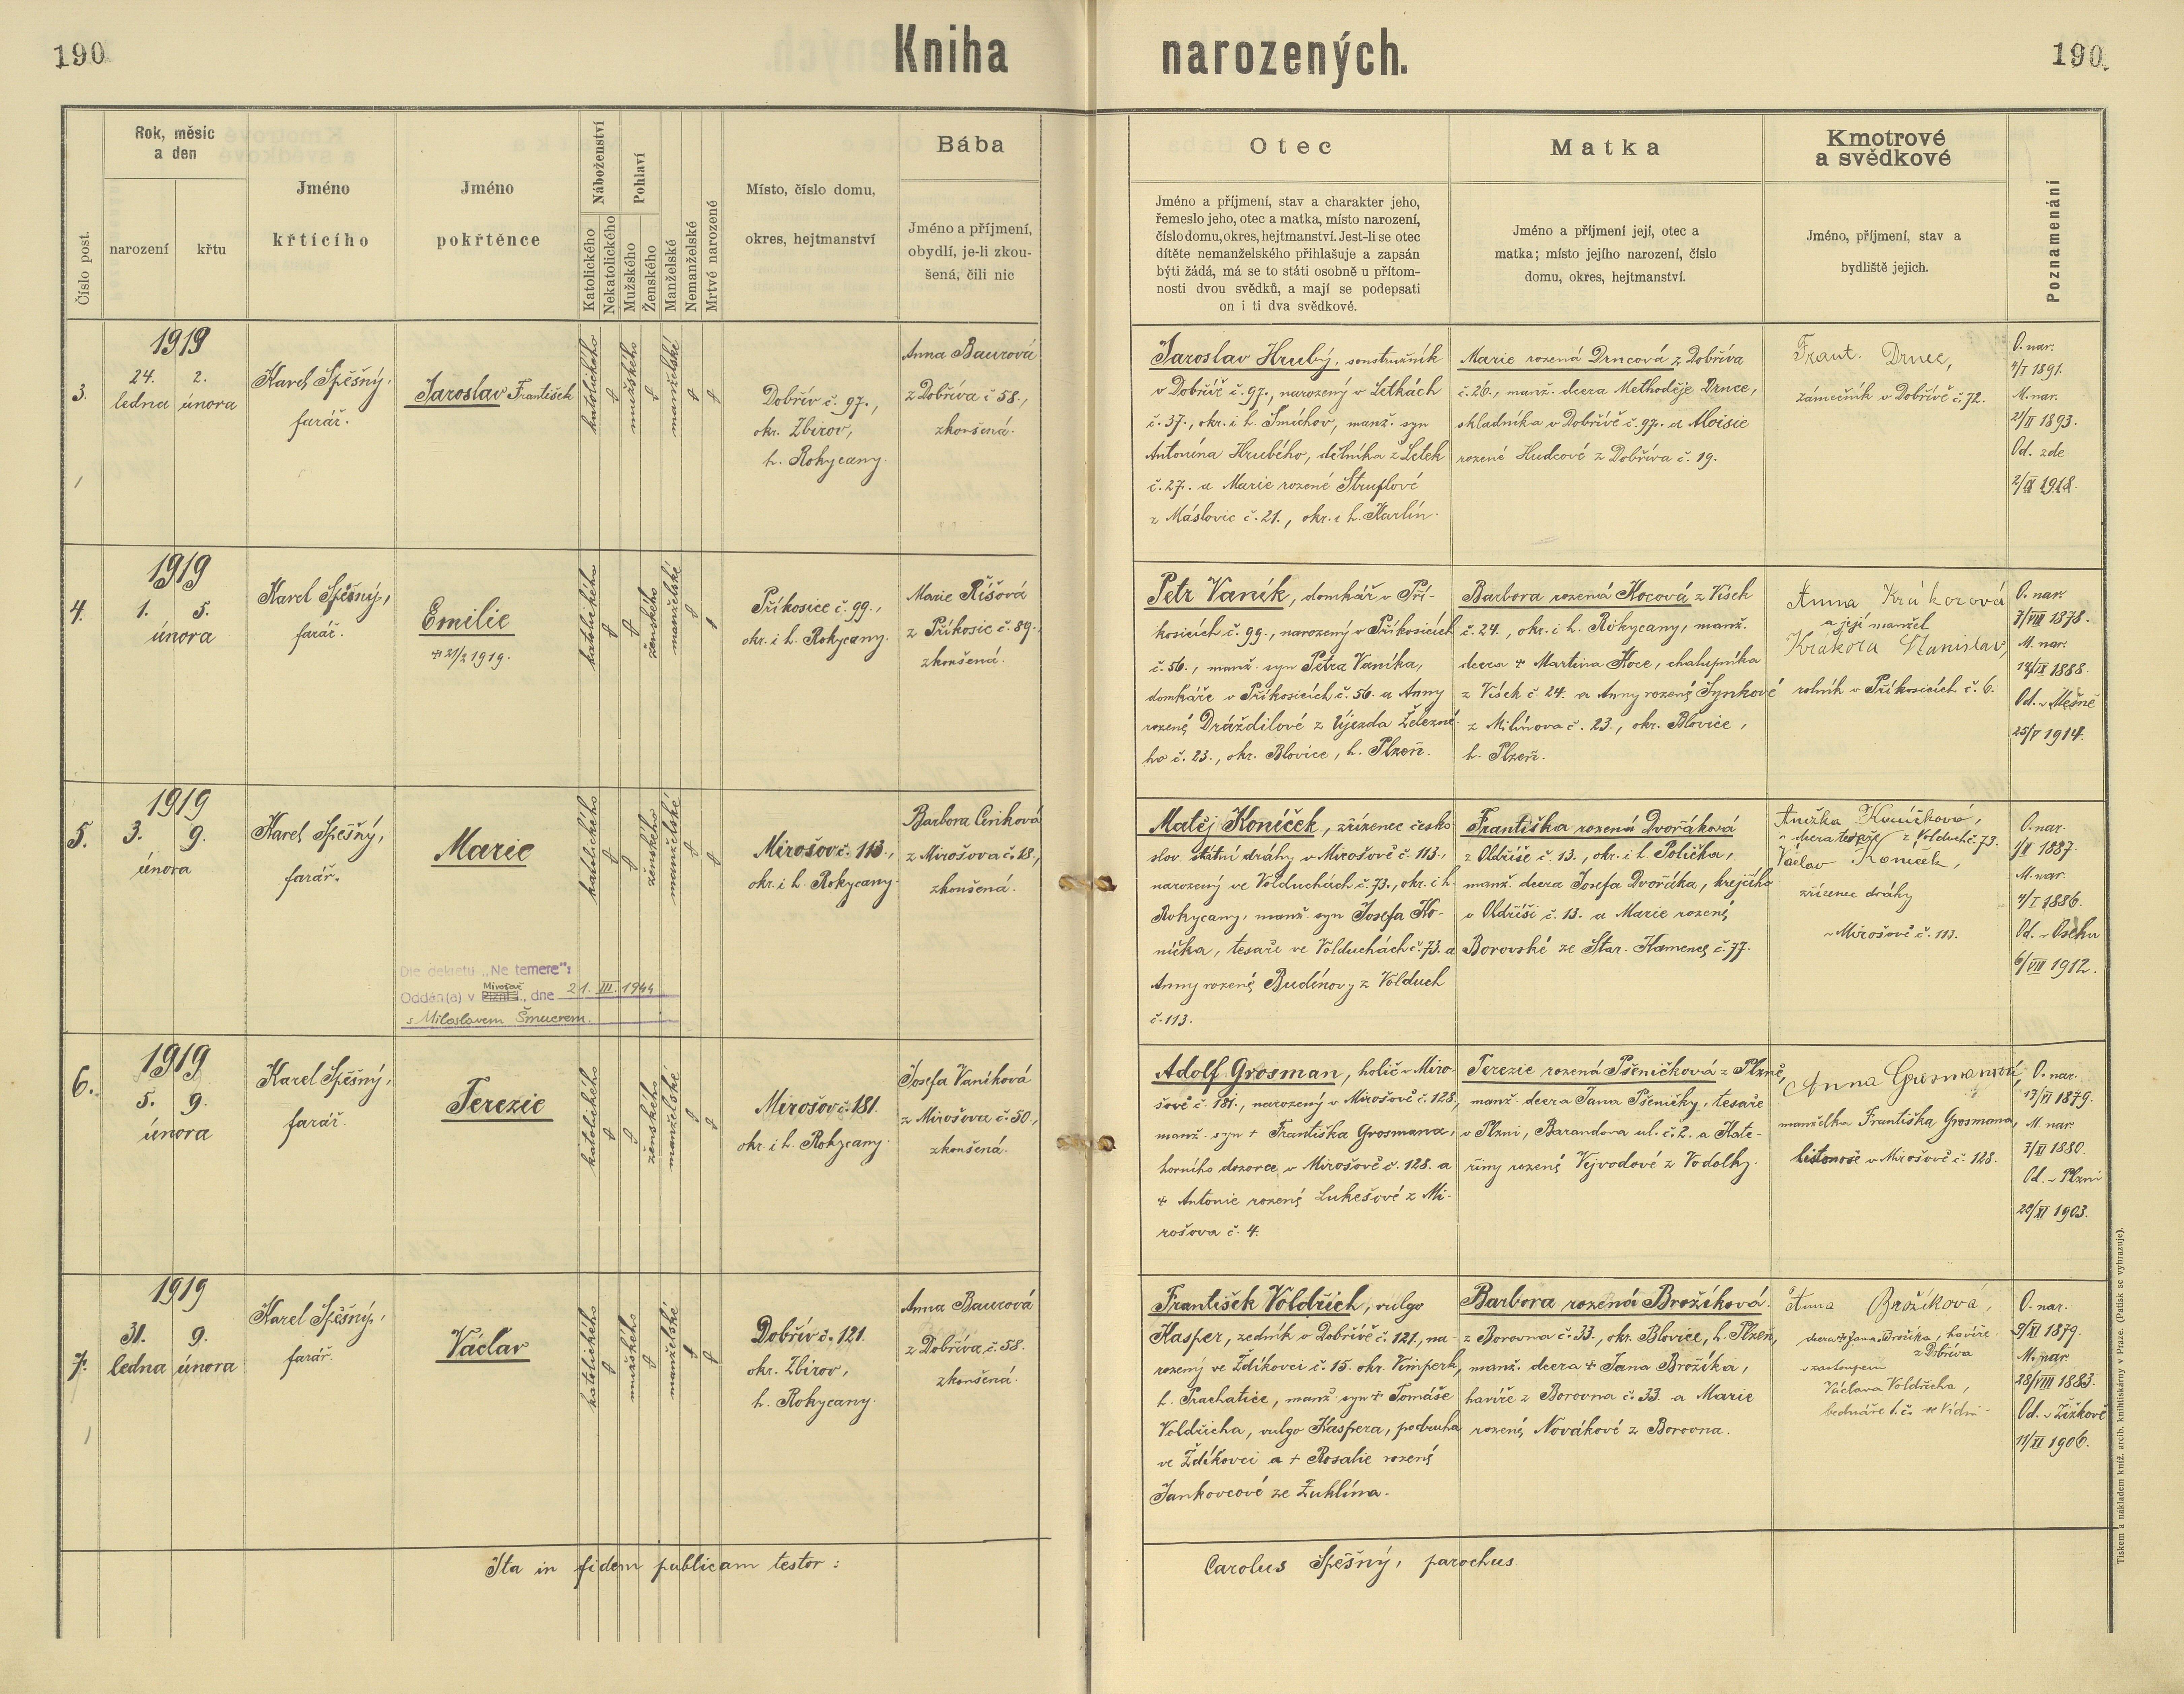 190
Kniha narozených.
190.
Číslo post.
Rok, měsíc
a den
narození
křtu
Jméno
křtícího
Jméno
pokřtěnce
Náboženství
Katolického
Nekatolického
Pohlaví
Mužského
Ženského
Manželské
Nemanželské
Mrtvě narozené
Místo, číslo domu,
okres, hejtmanství
Bába
Jméno a příjmení,
obydlí, je-li zkou-
šená, čili nic
Otec
Jméno a příjmení, stav a charakter jeho,
řemeslo jeho, otec a matka, místo narození,
číslo domu, okres, hejtmanství. Jest-li se otec
dítěte nemanželského přihlašuje a zapsán
býti žádá, má se to státi osobně u přítom-
nosti dvou svědků, a mají se podepsati
on i ti dva svědkové.
Matka
Jméno a příjmení její, otec a
matka; místo jejího narození, číslo
domu, okres, hejtmanství.
Kmotrové
a svědkové
Jméno, příjmení, stav a
bydliště jejich.
Poznamenání
3.
1919
24. 2.
ledna února
Karel Spěšný,
farář.
Jaroslav František
katolického
mužského
manželské
Dobřív č. 97.,
okr. Zbirov,
h. Rokycany.
Anna Baurová
z Dobříva č 58.,
zkoušená.
Jaroslav Hrubý, soustružník
v Dobřívě č. 97., narozený v Letkách
č. 37., okr. i h. Smíchov, manž. syn
Antonína Hrubého, dělníka z Letek
č. 27. a Marie rozené
z Máslovic č. 21., okr. i h. Karlín.
Marie rozená Drncová z Dobříva
č. 26., manž. dcera Methoděje Drnce,
skladníka v Dobřívě č. 97. a Aloisie
rozené Hudcové z Dobříva č. 19.
Frant. Drnec,
zámečník v Dobřívě č. 72.
O. nar.
4/I 1891.
M. nar.
21/II 1893.
Od. zde
2/IX 1918.
4.
1919
1. 5.
února
Karel Spěšný,
farář.
Emilie
+ 21/2 1919.
katolického
ženského
manželské
Příkosice č. 99.,
okr. i h. Rokycany.
Marie Říšová
z Příkosic č. 89.,
zkoušená.
Petr Vaník, domkář v Pří-
kosicích č. 99., narozený v Příkosicích
č. 56., manž. syn Petra Vaníka,
domkáře v Příkosicích č. 56. a Anny
rozené Dráždilové z Újezda Železné-
ho č. 23., okr. Blovice, h. Plzeň.
Barbora rozená Kocová z Vísek
č. 24., okr. i h. Rokycany, manž.
dcera + Martina Koce, chalupníka
z Vísek č. 24. a Anny rozené Synkové
z Milínova č. 23., okr. Blovice,
h. Plzeň.
Anna Krákorová
a její manžel
Krákora Stanislav,
rolník v Příkosicích č. 6.
O. nar.
7/VIII 1878.
M. nar.
14/IX 1888.
Od. v Měšně
25/V 1914.
5.
1919
3. 9.
února
Karel Spěšný,
farář.
Marie
Dle dekretu „Ne temere":
Oddán(a) v Mirošově, dne 21. III. 1944
s Miloslavem Šmucrem.
katolického
ženského
manželské
Mirošov č. 113.,
okr. i h. Rokycany.
Barbora Ceriková
z Mirošova č. 18.,
zkoušená.
Matěj Koníček, zřízenec česko-
slov. státní dráhy v Mirošově č. 113.,
narozený ve Volduchách č. 73., okr. i h.
Rokycany, manž. syn Josefa Ko-
níčka, tesaře ve Volduchách č. 73. a
Anny rozené Budínovy z Volduch
č. 113.
Františka rozená Dvořáková
z Oldříše č. 13., okr. i h. Polička,
manž. dcera Josefa Dvořáka, krejčího
v Oldříši č. 13. a Marie rozené
Borovské ze Star. Kamenes č. 77.
Anežka Koníčková,
dcera tesaře z Volduch č. 73.
Václav Koníček,
zřízenec dráhy
v Mirošově č. 113.
O. nar.
1/II 1887.
M. nar.
4/I 1886.
Od. v Oseku
6/VIII 1912.
6.
1919
5. 9.
února
Karel Spěšný,
farář.
Terezie
katolického
ženského
manželské
Mirošov č. 181.
okr. i h. Rokycany.
Josefa Vaníková
z Mirošova č. 50.,
zkoušená.
Adolf Grosman, holič v Miro-
šově č. 181., narozený v Mirošově č. 128.,
manž. syn + Františka Grosmana,
horního dozorce v Mirošově č. 128. a
+ Antonie rozené Lukešové z Mi-
rošova č. 4.
Terezie rozená Pšeničková z Plzně,
manž. dcera Jana Pšeničky, tesaře
v Plzni, Barandova ul. č. 2. a Kate-
řiny rozené Vejvodové z Vodolky.
Anna Grosmanová,
manželka Františka Grosmana,
listonoše v Mirošově č. 128.
O. nar.
17/VI 1879.
M. nar.
7/XI 1880.
Od. v Plzni
28/XI 1903.
7.
1919
31. 9.
ledna února
Karel Spěšný,
farář.
Václav
katolického
mužského
manželské
Dobřív č. 121.
okr. Zbirov,
h. Rokycany.
Anna Baurová
z Dobříva č. 58.
zkoušená.
František Voldřich, vulgo
Kasper, zedník v Dobřívě č. 121, na-
rozený ve Ždíkovci č. 15. okr. Vimperk,
h. Prachatice, manž. syn + Tomáše
Voldřicha, vulgo Kaspera, podruha
ve Ždíkovci a + Rosalie rozené
Jankovcové ze Žuklína.
Barbora rozená Brožíková
z Borovna č. 33., okr. Blovice, h. Plzeň,
manž. dcera + Jana Brožíka,
havíře z Borovna č. 33. a Marie
rozené Novákové z Borovna.
Anna Brožíková,
dcera + Jana Brožíka, havíře
z Dobříva
v zastoupení
Václava Voldřicha,
bednáře t. č. ve Vídni
O. nar.
9/XI 1879.
M. nar.
28/VIII 1883.
Od. v Žižkově
11/XI 1906.
Ita in fidem publicam testor:
Carolus Spěšný, parochus.
Tiskem a nákladem kníž. arcib. knihtiskárny v Praze. (Patisk se vyhrazuje).